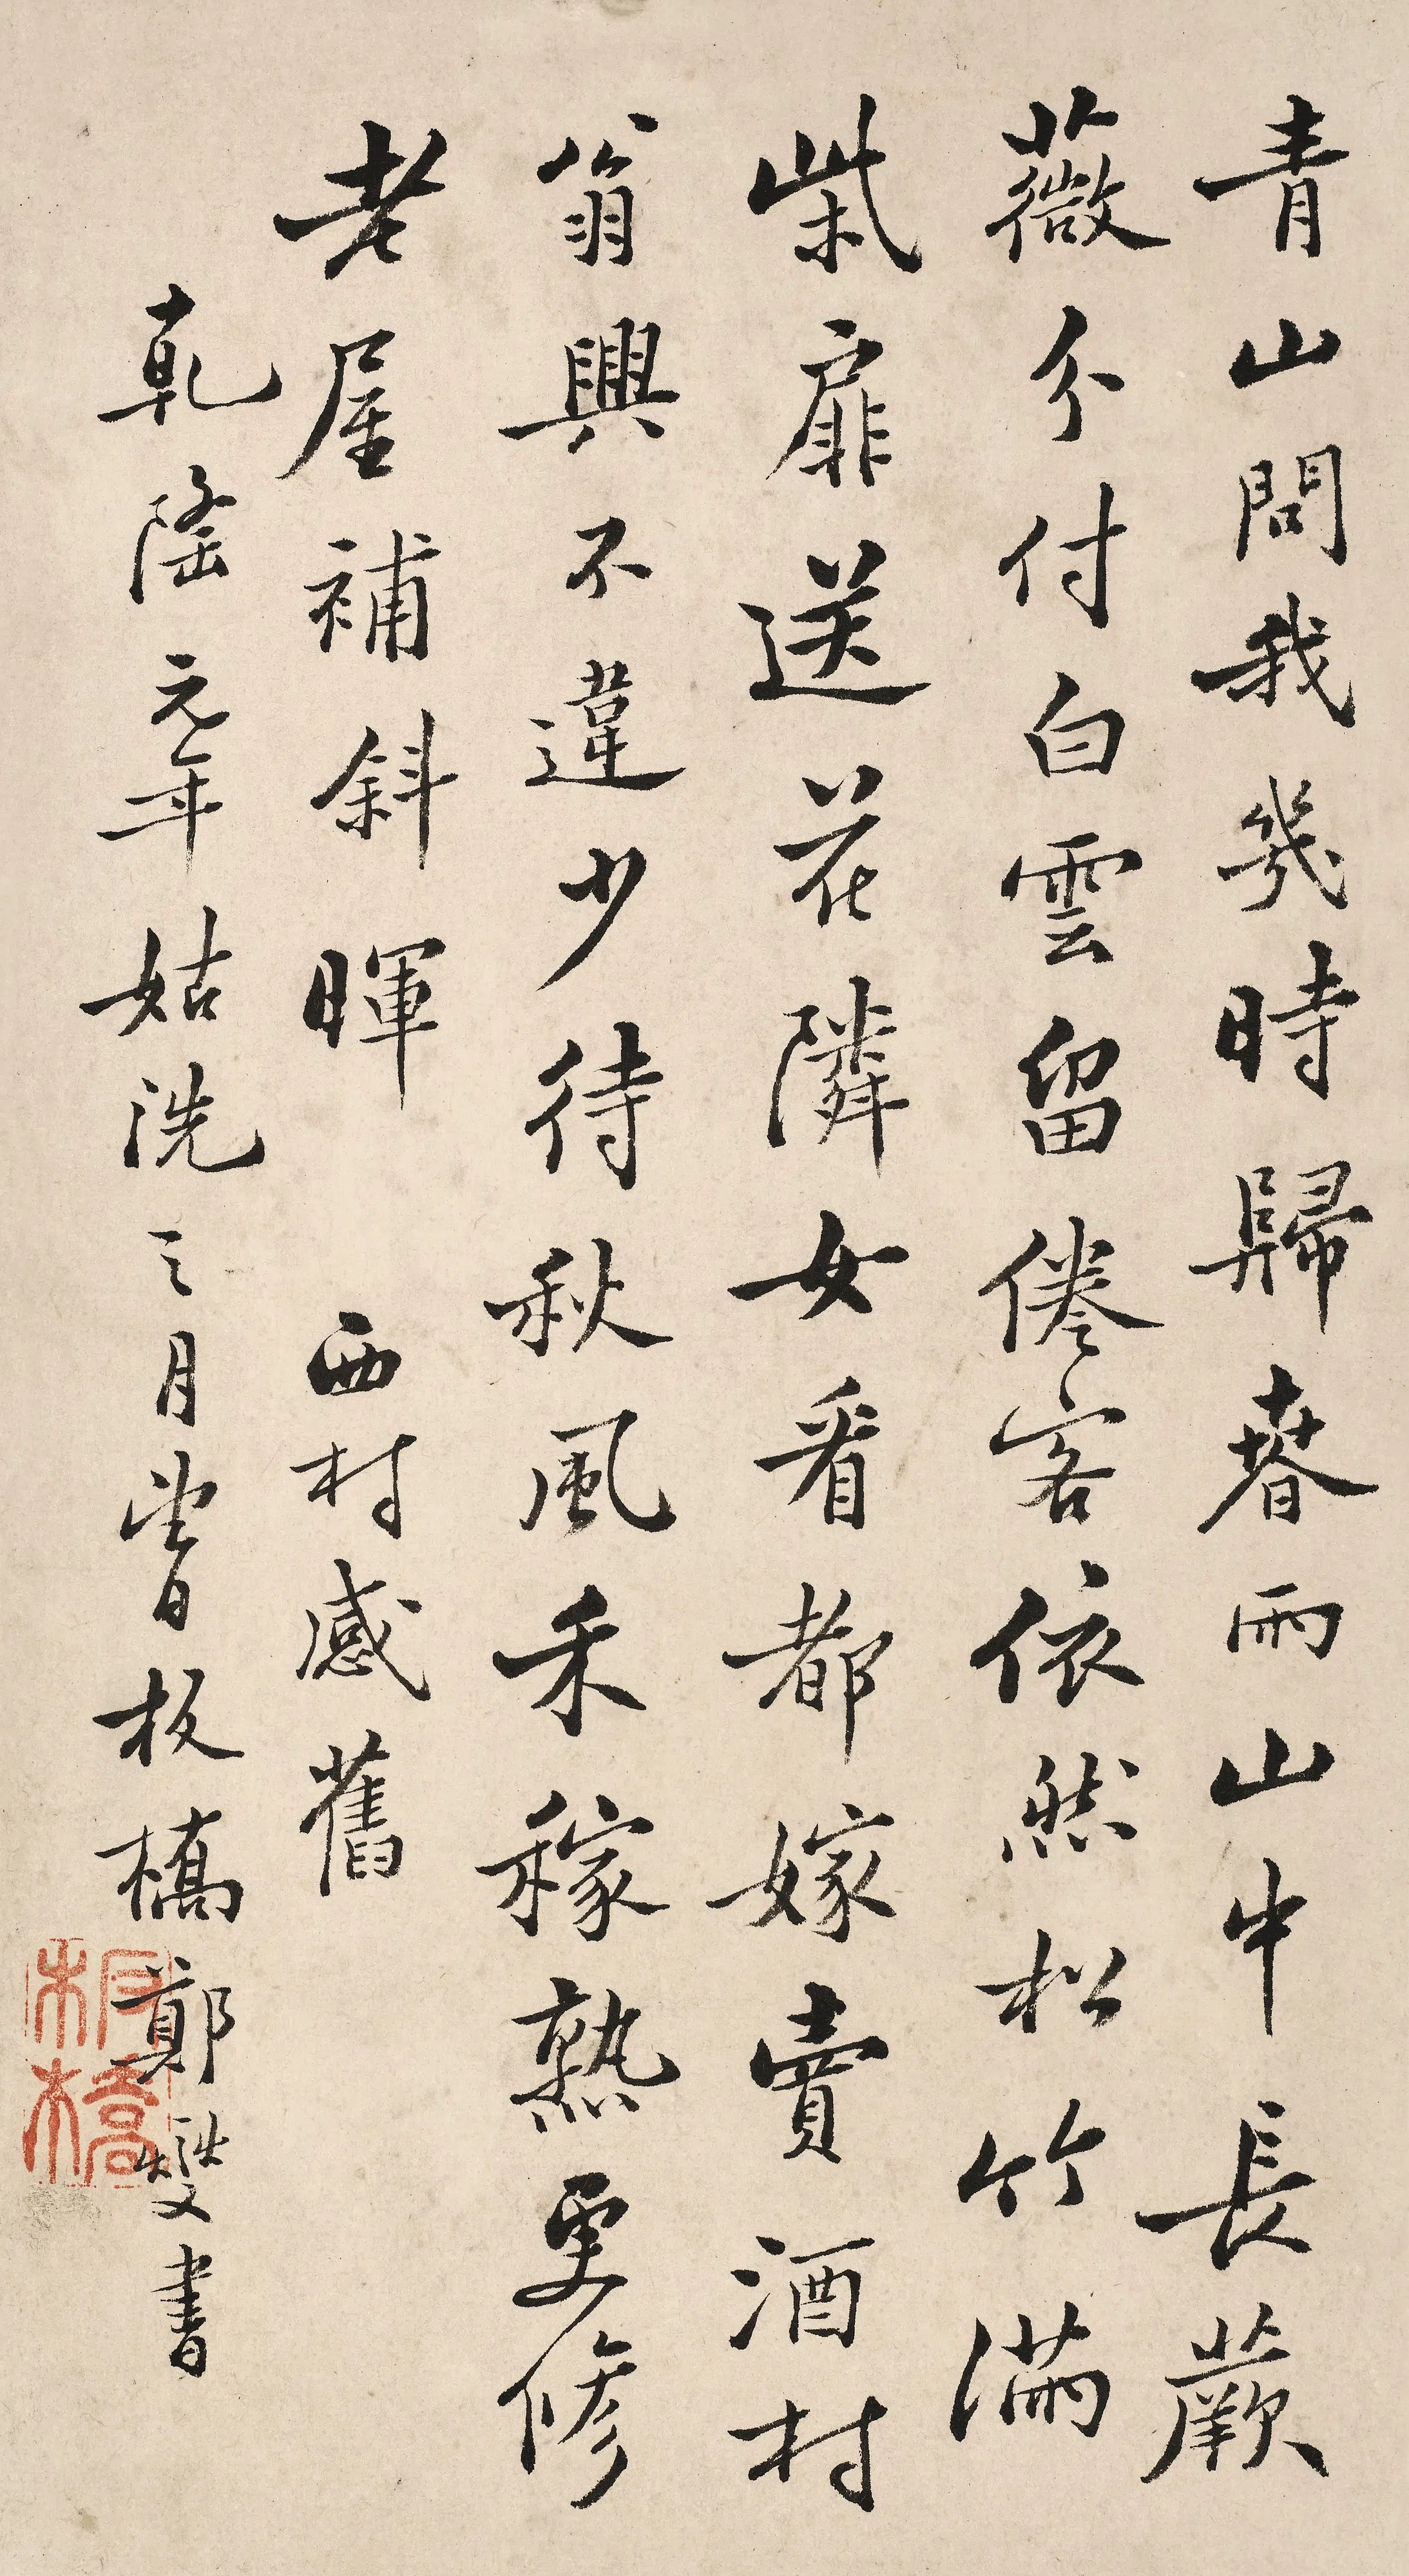 青山問我幾時歸春雨山中長蕨
薇分付白雲留倦客依然松竹滿
柴扉送花隣女看都嫁賣酒村
翁興不違少待秋風禾稼熟更修
老屋補斜暉 西村感舊
乾隆元年姑洗之月望日板橋鄭燮書
板橋